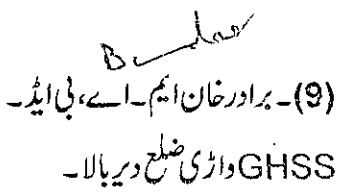 (9)۔ برادر خان ایم۔اے، بی ایڈ۔
GHSS واڑی ضلع دیر بالا۔